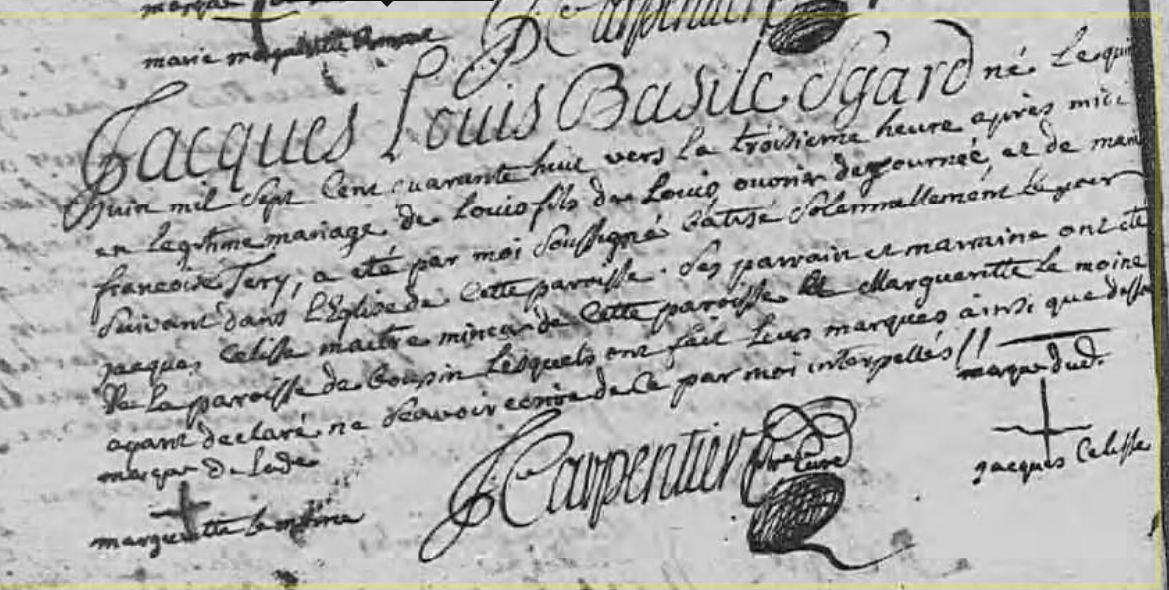 marque
marie marguerite
J Carpentier
Jacques Louis Basile Sgard né Le qui
juin mil sept Cent quarante huit vers La troisieme heure apries midi
en Legitime mariage de Louis fils de Louis, ouvrier de journée, et de marie
francoise Tery, a eté par moi soussigné batisé solemnellement Le jour
suivant dans L'Eglise de Cette paroisse. Ses parrain et marraine ont eté
jacques Celisse maitre mineur de Cette paroisse et Margueritte Le moine
de La paroisse de Lesquels ont fait Leurs marques ainsi que dessu
ayant declaré ne sçavoir ecrire de Ce par moi interpellés //
marque dud.
marque de Lade
jacques Celisse
J Carpentier ptre Curé
margueritte Le moine